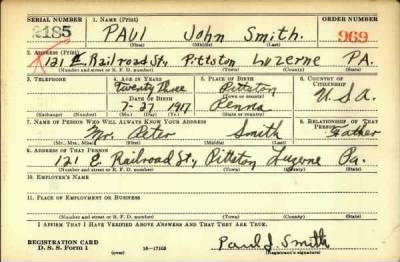 SERIAL NUMBER 1. NAME (Print) ORDER NUMBER
2185 PAUL John Smith. 969
(First) (Middle) (Last)
2. ADDRESS (Print)
121 E Railroad St., Pittston Luzerne PA.
(Number and street or R. F. D. number) (Town) (County) (State)
3. TELEPHONE 4. AGE IN YEARS 5. PLACE OF BIRTH 6. COUNTRY OF CITIZENSHIP
Twenty Three Pittston
DATE OF BIRTH (Town or county) U.S.A.
7-27 1917 Penna
(Exchange) (Number) (Mo.) (Day) (Yr.) (State or country)
7. NAME OF PERSON WHO WILL ALWAYS KNOW YOUR ADDRESS 8. RELATIONSHIP OF THAT PERSON
Mr. Peter Smith Father
(Mr., Mrs., Miss) (First) (Middle) (Last)
9. ADDRESS OF THAT PERSON
121 E. Railroad St., Pittston Luzerne Pa.
(Number and street or R. F. D. number) (Town) (County) (State)
10. EMPLOYER'S NAME
11. PLACE OF EMPLOYMENT OR BUSINESS
(Number and street or R. F. D. number) (Town) (County) (State)
I AFFIRM THAT I HAVE VERIFIED ABOVE ANSWERS AND THAT THEY ARE TRUE.
REGISTRATION CARD
D. S. S. Form 1 (over) 16-17105 Paul J. Smith
(Registrant's signature)